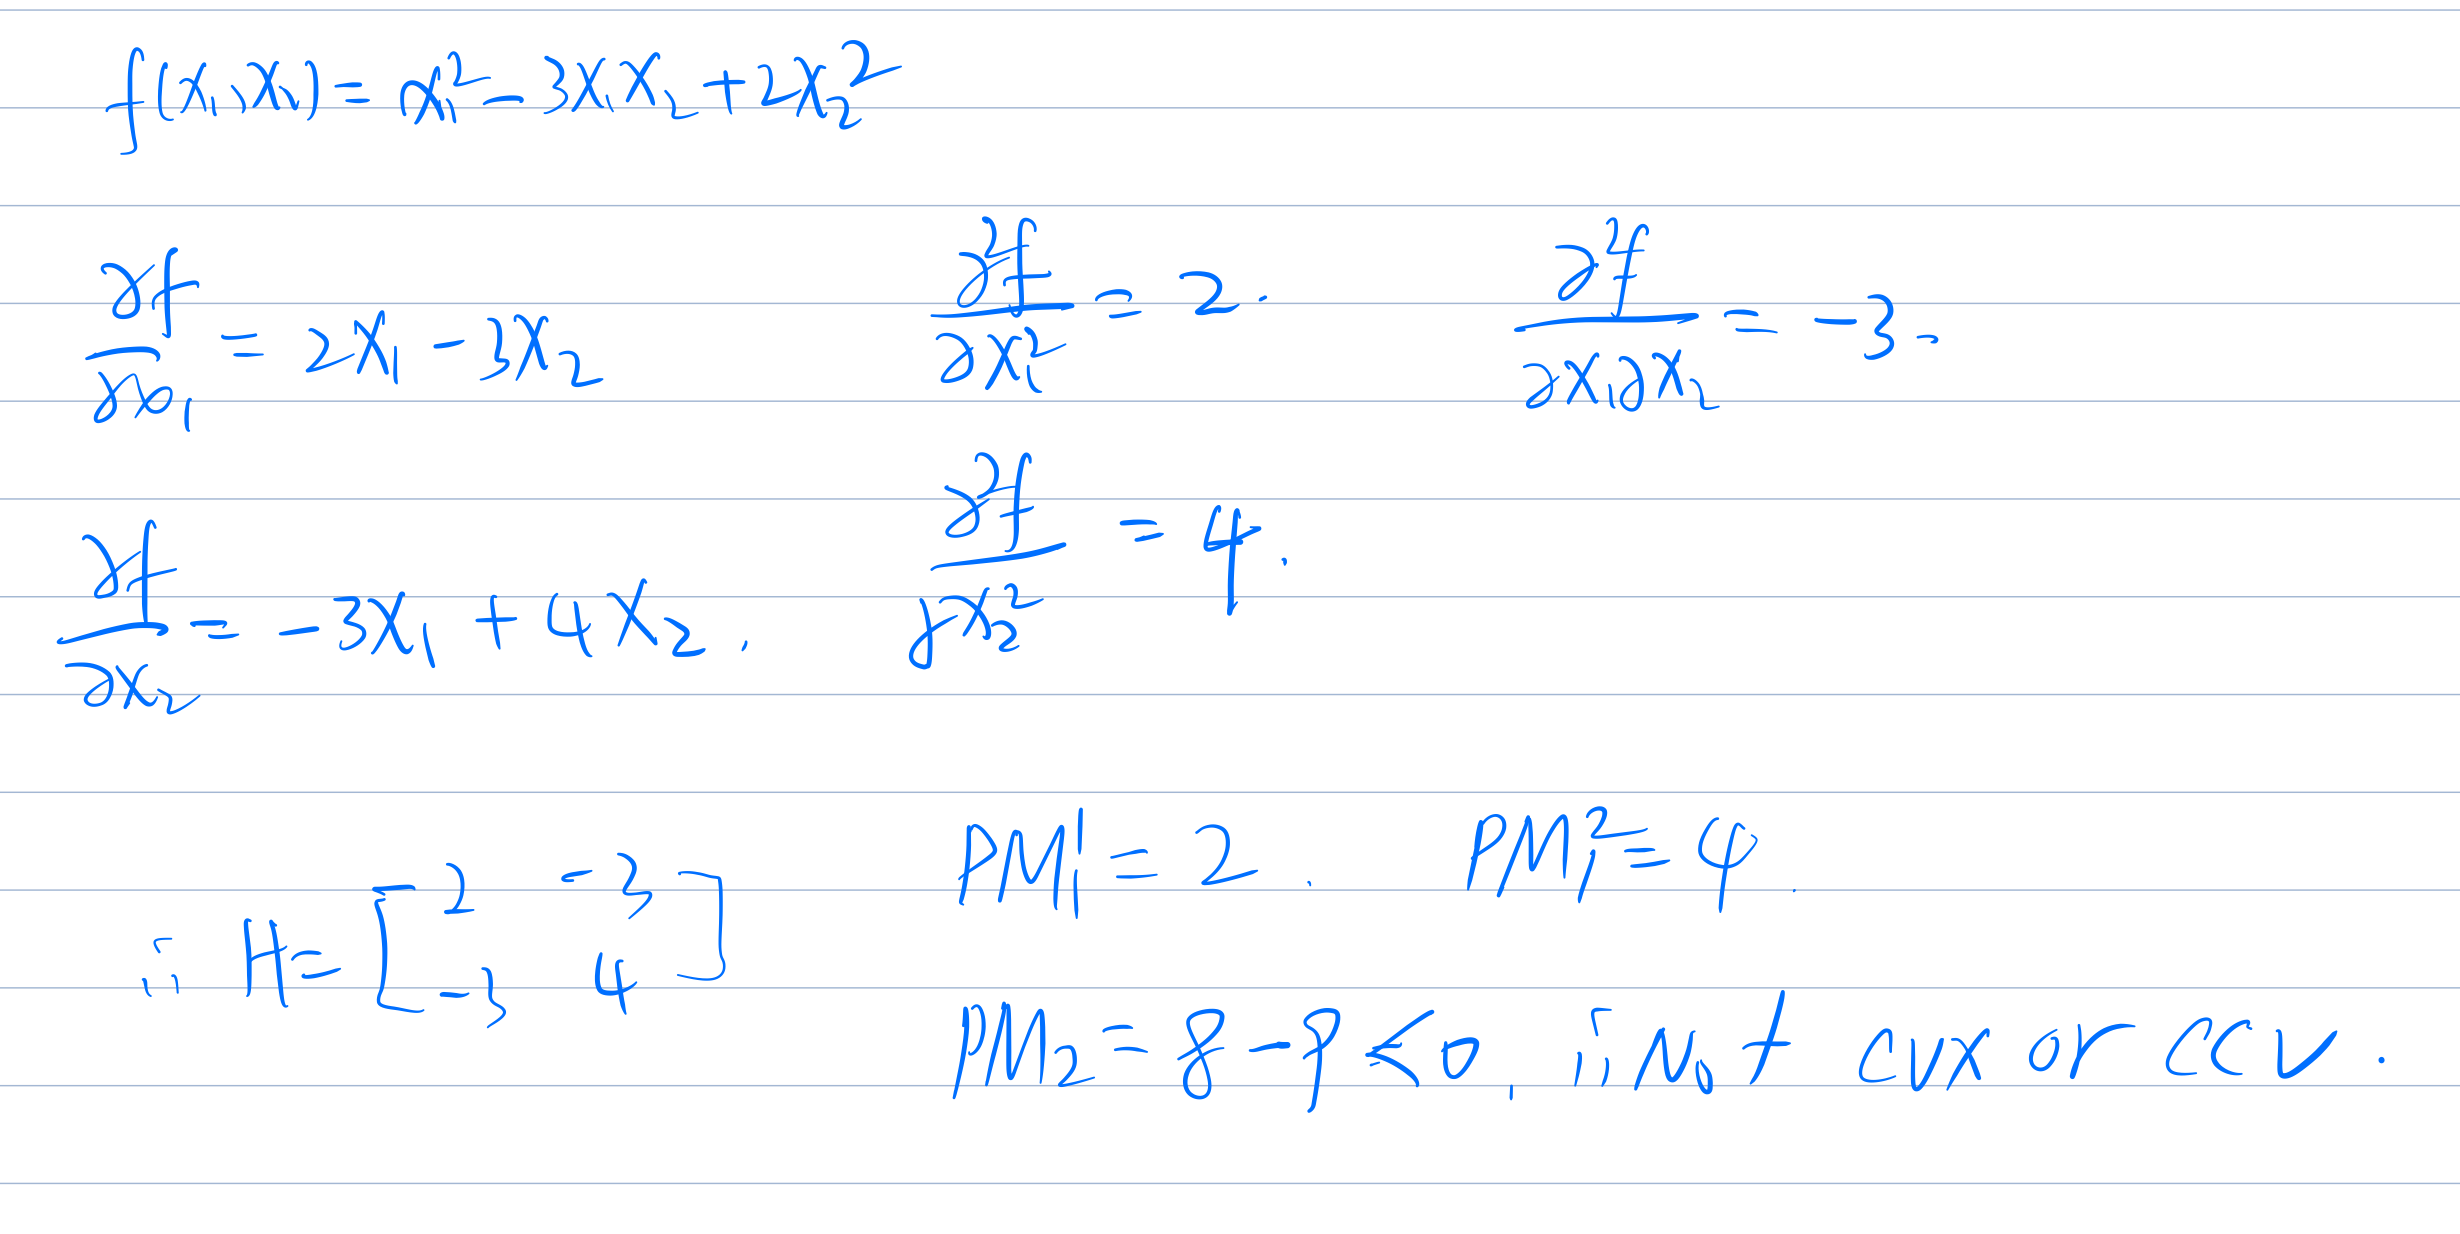 f(x₁,x₂) = x₁² - 3x₁x₂ + 2x₂²
∂f/∂x₁ = 2x₁ - 3x₂ ∂²f/∂x₁² = 2. ∂²f/∂x₁∂x₂ = -3.
∂f/∂x₂ = -3x₁ + 4x₂. ∂²f/∂x₂² = 4.
∴ H = [2 -3; -3 4] PM₁¹ = 2. PM₁² = 4.
PM₂ = 8 - 9 ≤ 0, ∴ Not cvx or ccv.